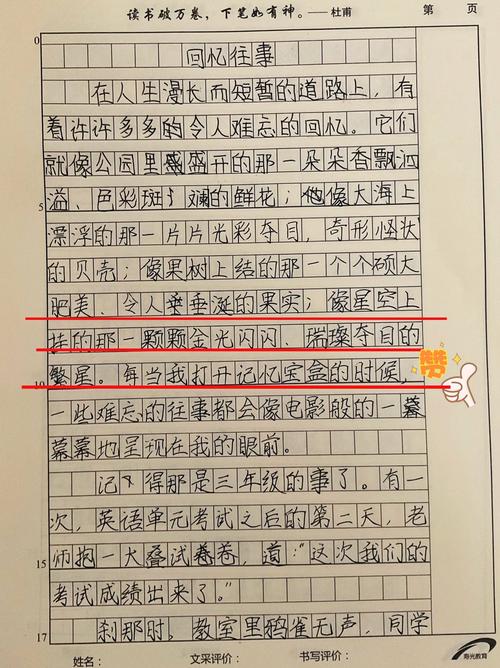 读书破万卷，下笔如有神。——杜甫 第 页
0
回忆往事
在人生漫长而短暂的道路上，有
着许许多多的令人难忘的回忆。它们
就像公园里盛盛开的那一朵朵香飘洒
5
溢、色彩斑斓的鲜花；像大海上
漂浮的那一片片光彩夺目，奇形怪状
的贝壳；像果树上结的那一个个硕大
肥美、令人垂垂涎的果实；像星空上
挂的那一颗颗金光闪闪、璀璨夺目的
赞赞
10
繁星。每当我打开记忆宝盒的时候，
一些难忘的往事都会像电影般的一幕
幕幕地呈现在我的眼前。
记得那是三年级的事了。有一
次，英语单元考试之后的第二天，老
15
师抱一大叠试卷卷，道：“这次我们的
考试成绩出来了。”
17
刹那时，教室里鸦雀无声，同学
姓名： 文采评价： 书写评价： 寿光教育